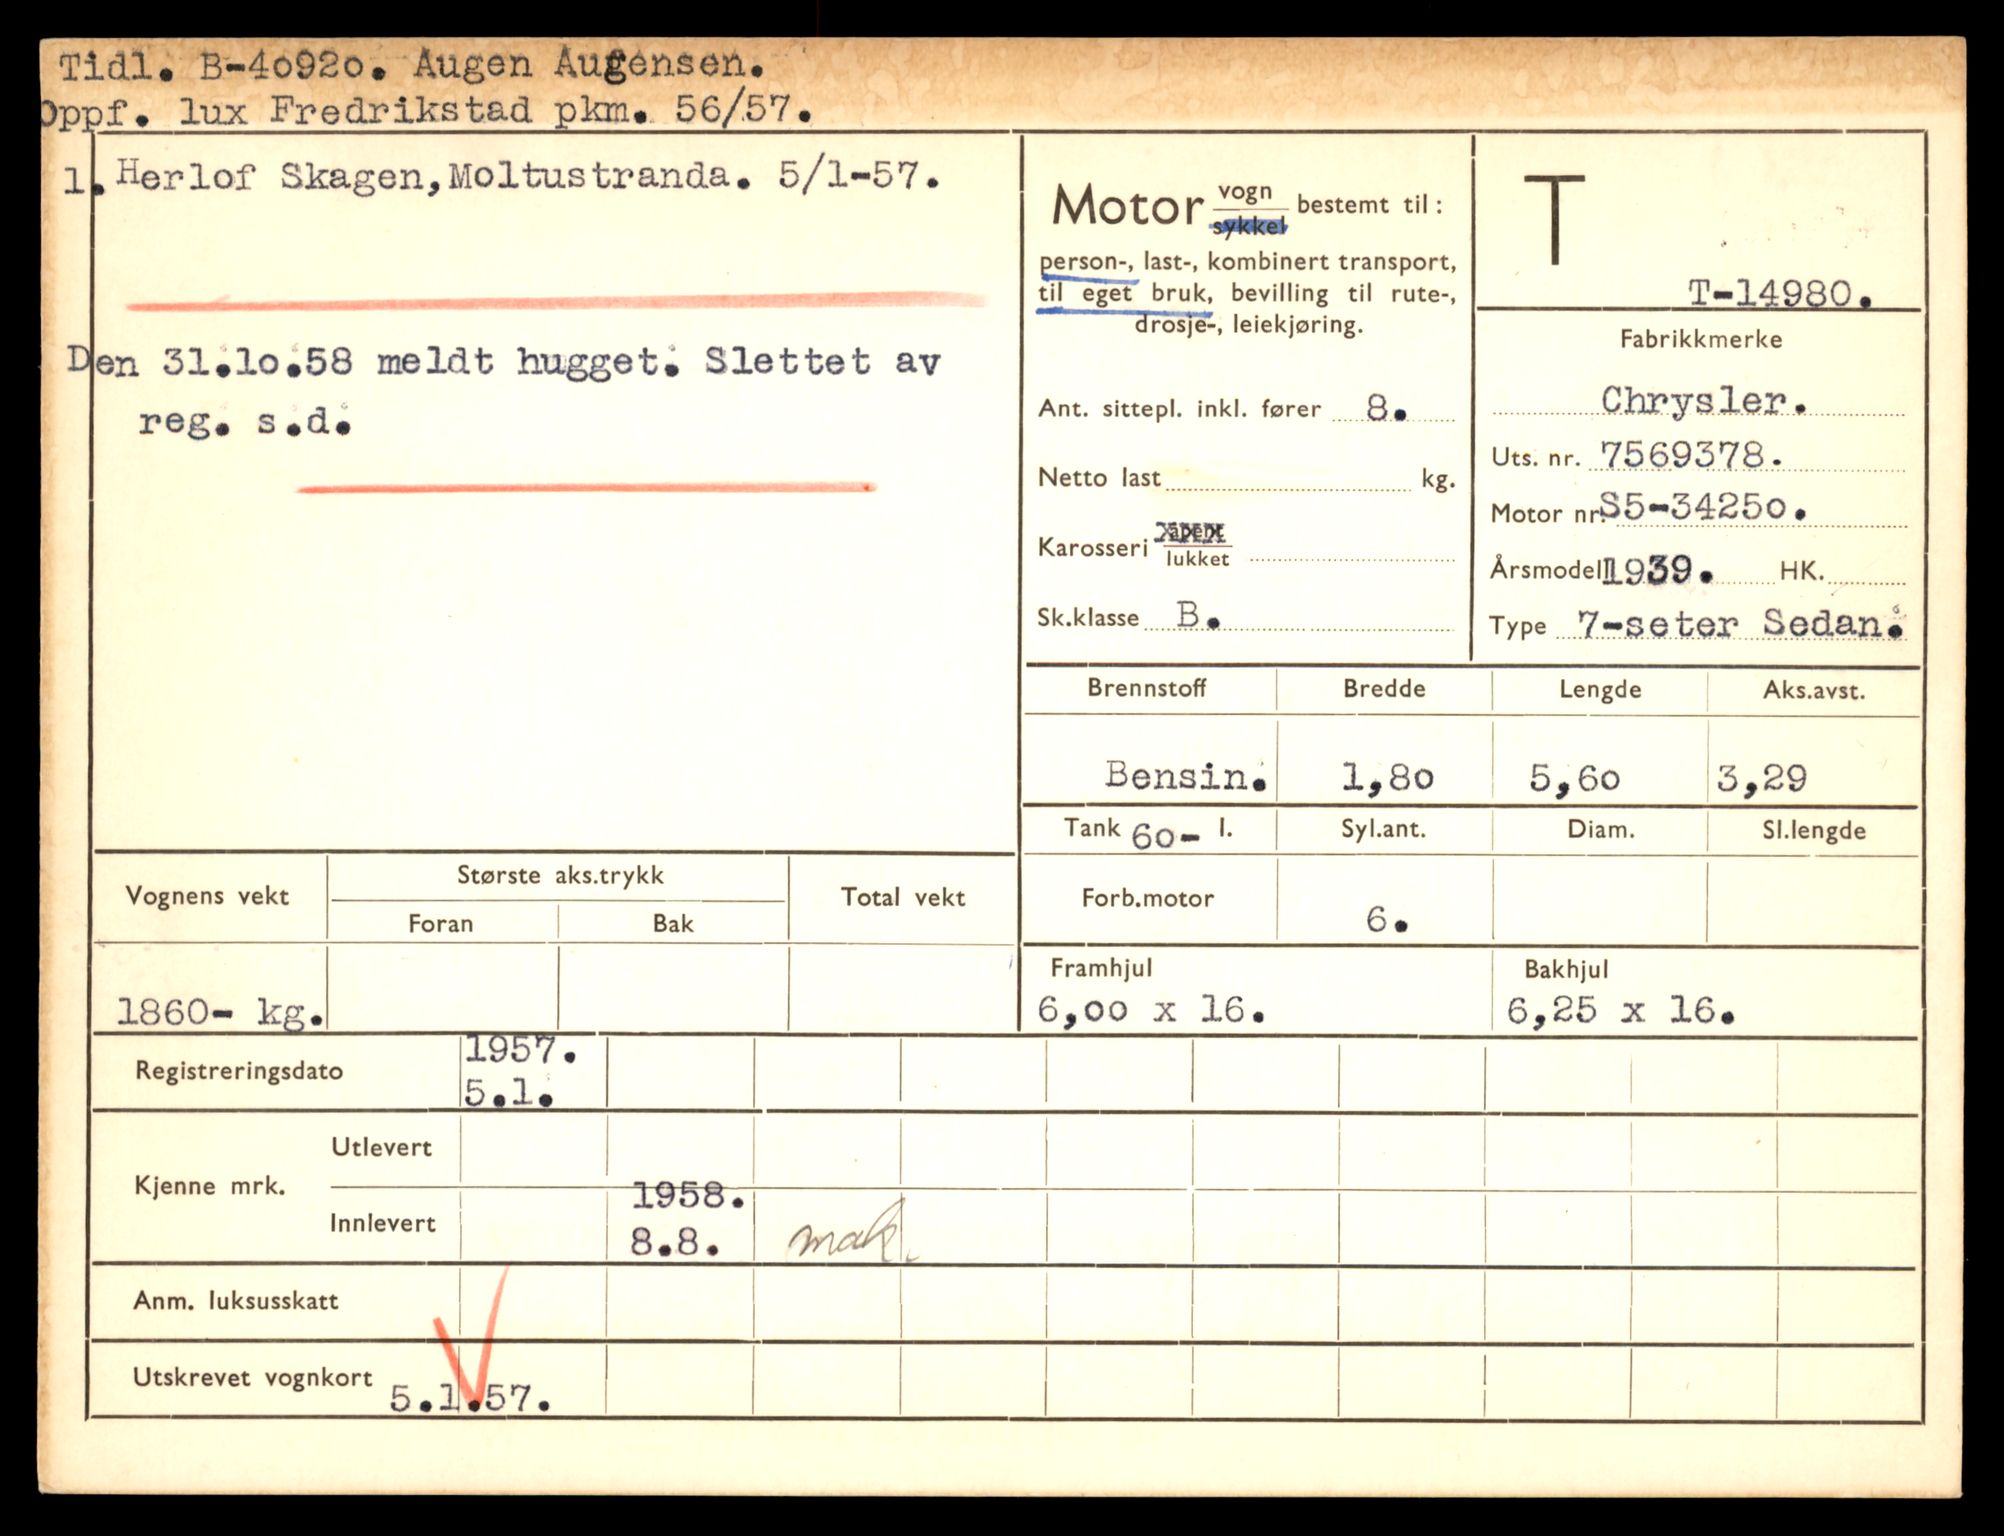 Tidl. B-40920. Augen Augensen.
Oppf. lux Fredrikstad pkm. 56/57.
1. Herlof Skagen, Moltustranda. 5/1-57.
Den 31.10.58 meldt hugget. Slettet av
reg. s.d.
Motor vogn/sykkel bestemt til:
person-, last-, kombinert transport,
til eget bruk, bevilling til rute-,
drosje-, leiekjøring.
Ant. sittepl. inkl. fører 8.
Netto last kg.
Karosseri åpent/lukket
Sk.klasse B.
T
T-14980.
Fabrikkmerke
Chrysler.
Uts. nr. 7569378.
Motor nr. S5-34250.
Årsmodell 1939. HK.
Type 7-seter Sedan.
Brennstoff Bredde Lengde Aks.avst.
Bensin. 1,80 5,60 3,29
Tank 60- l. Syl.ant. Diam. Sl.lengde
Forb.motor 6.
Framhjul Bakhjul
6,00 x 16. 6,25 x 16.
Vognens vekt Største aks.trykk Total vekt
Foran Bak
1860- kg.
Registreringsdato 1957.
5.1.
Kjenne mrk. Utlevert
Innlevert 1958.
8.8. mak.
Anm. luksusskatt
Utskrevet vognkort 5.1.57.